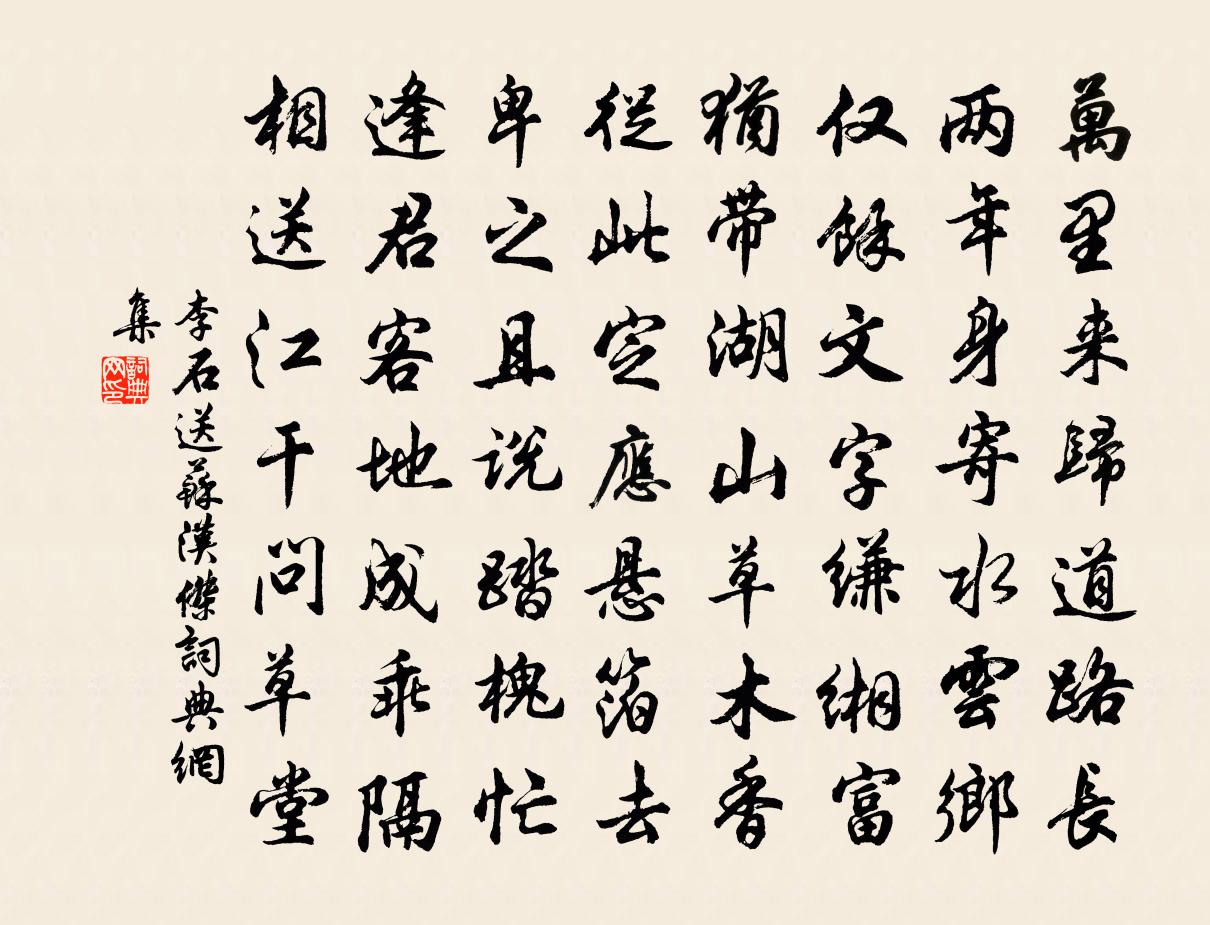 萬里来歸道路長
两年身寄水雲鄉
仅餘文字縑緗富
猶带湖山草木香
從此定應悬箔去
卑之且说踏槐忙
逢君客地成乖隔
相送江干问草堂
李石送蘇漢傑詞典網
集
詞典网印